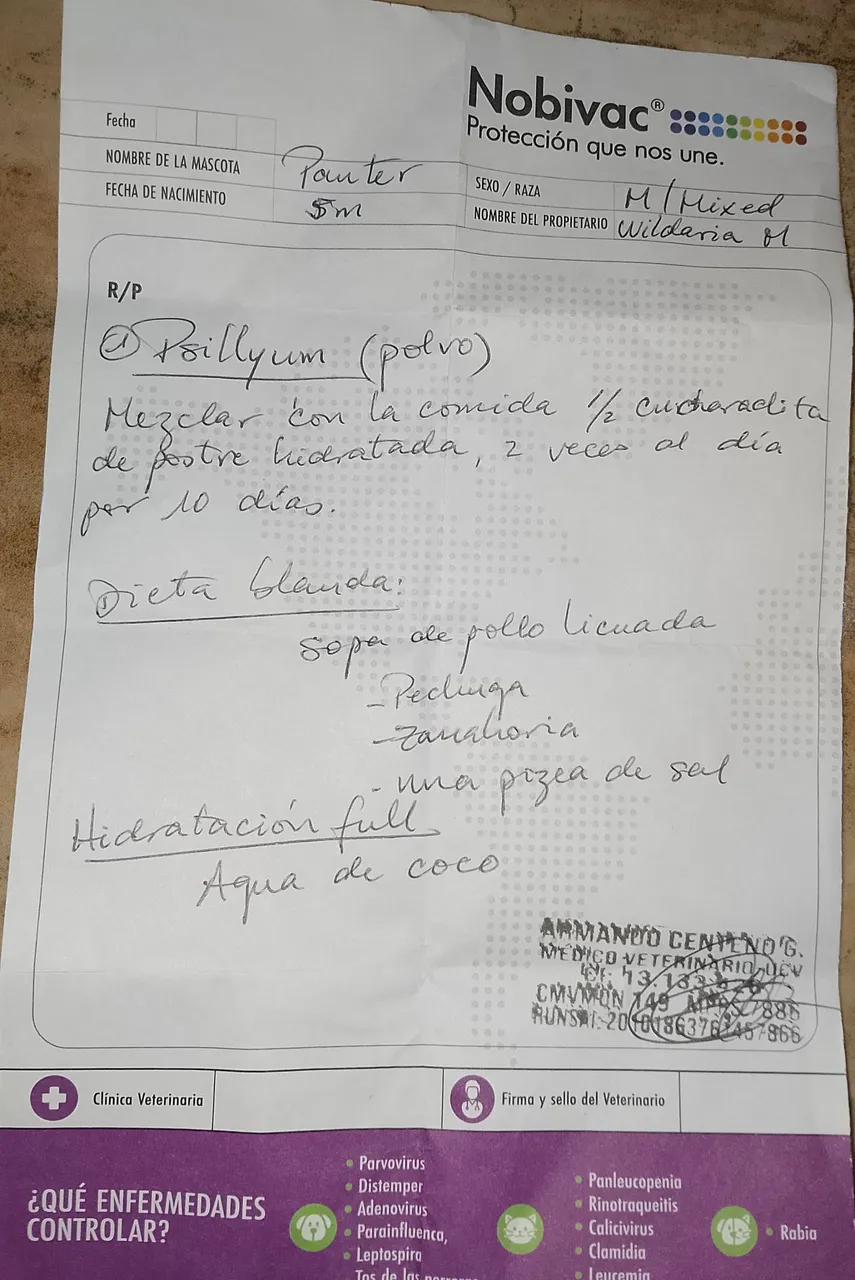 Nobivac®
Protección que nos une.
Fecha
NOMBRE DE LA MASCOTA Panter
FECHA DE NACIMIENTO 5m
SEXO / RAZA M / Mixed
NOMBRE DEL PROPIETARIO Wildaria M
R/P
① Psillyum (polvo)
Mezclar con la comida 1/2 cucharadita
de postre hidratada, 2 veces al día
por 10 días.
Dieta blanda:
sopa de pollo licuada
- Pechuga
- Zanahoria
- una pizca de sal
Hidratación full
Agua de coco
ARMANDO CENTENO G.
MÉDICO VETERINARIO UCV
CMVMON 149
Clínica Veterinaria
Firma y sello del Veterinario
¿QUÉ ENFERMEDADES
CONTROLAR?
• Parvovirus
• Distemper
• Adenovirus
• Parainfluenca,
• Leptospira
Tos de las
• Panleucopenia
• Rinotraqueitis
• Calicivirus
• Clamidia
• Leucemia
• Rabia